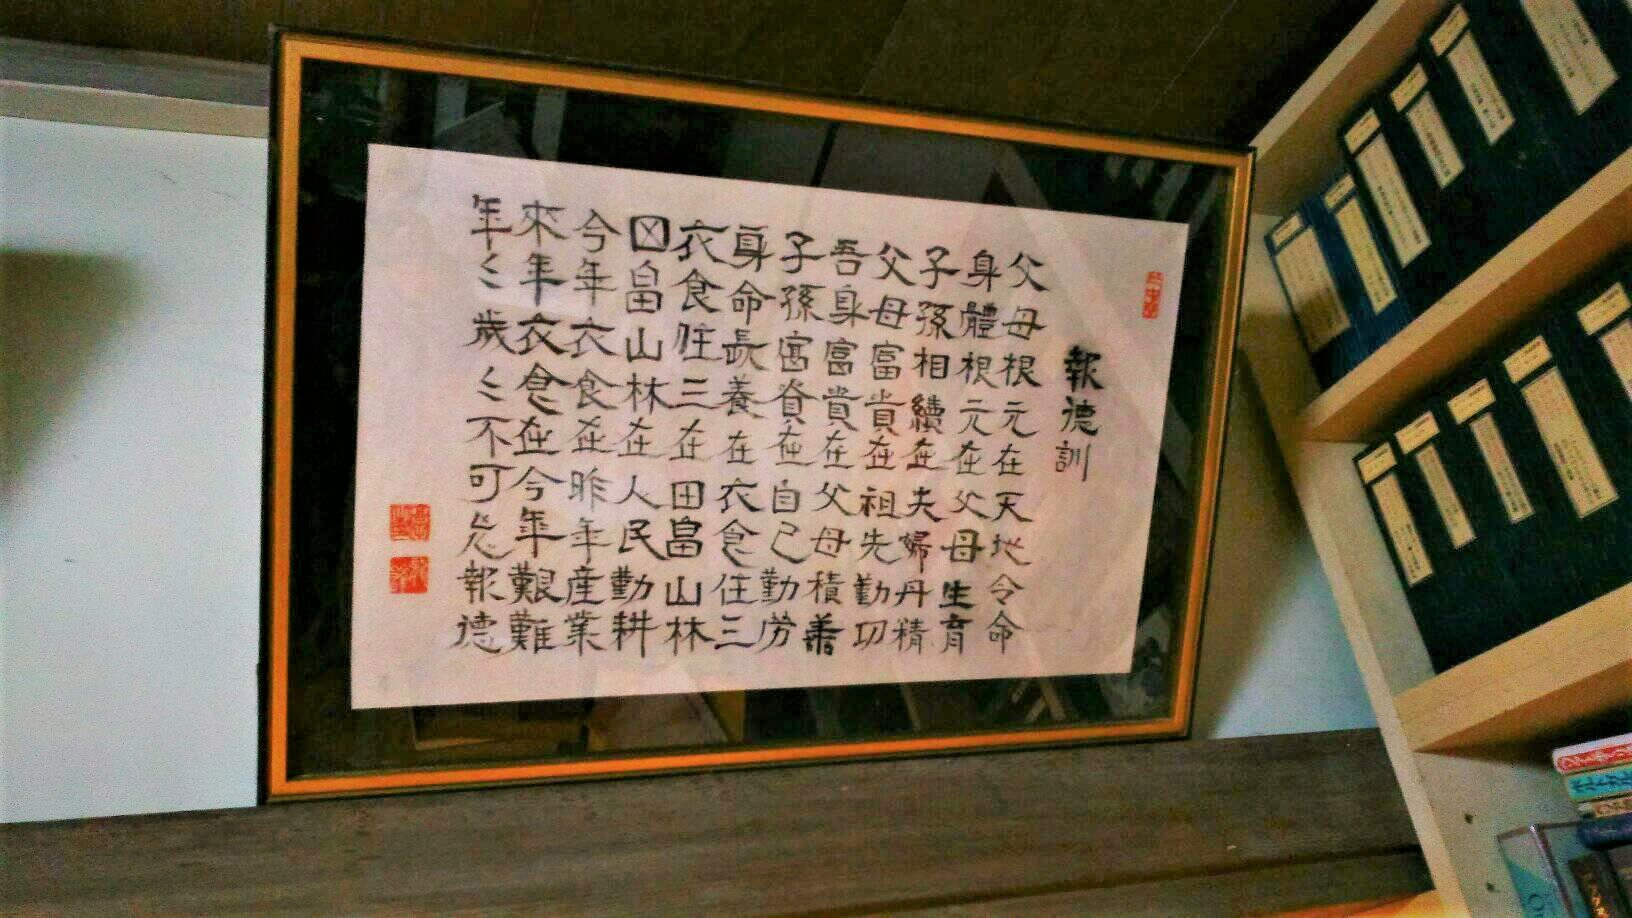 報徳訓
父母根元在天地令命
身體根元在父母生育
子孫相續在夫婦丹精
父母富貴在祖先勤功
吾身富貴在父母積善
子孫富貴在自己勤労
身命長養在衣食住三
衣食住三在田畠山林
田畠山林在人民勤耕
今年衣食在昨年産業
來年衣食在今年艱難
年々歳々不可忘報徳